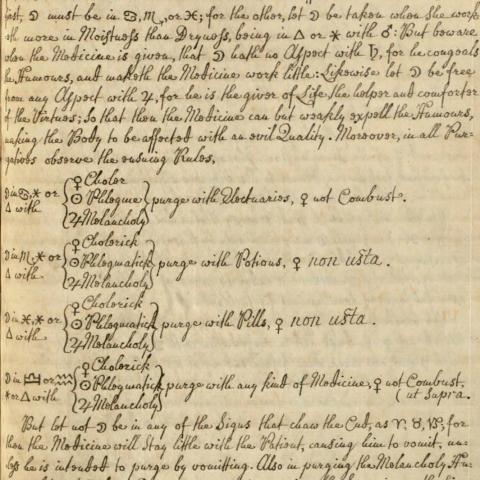 first, ☽ must be in ♋, ♏, or ♓; for the other, let ☽ be taken when she work-
eth more in Moistness than Dryness, being in △ or ⚹ with ♂: But beware
when the Medicine is given, that ☽ hath no Aspect with ♄, for he congeals
the Humours, and maketh the Medicine work little: Likewise let ☽ be free
from any Aspect with ♃, for he is the giver of Life, the helper and comforter
of the Virtues; So that then the Medicine can but weakly expell the Humours,
making the Body to be affected with an evil Quality. Moreover, in all Pur-
gatives observe the ensuing Rules,
☽ in ♋, ⚹ or △ with { ♀ Choler
☉ Phlegme
♃ Melancholy } purge with Electuaries, ♀ not Combust.
☽ in ♏, ⚹ or △ with { ♀ Cholerick
☉ Phlegmatick
♃ Melancholy } purge with Potions, ♀ non usta.
☽ in ♓, ⚹ or △ with { ♀ Cholerick
☉ Phlegmatick
♃ Melancholy } purge with Pills, ♀ non usta.
☽ in ♎ or ♒ ⚹ or △ with { ♀ Cholerick
☉ Phlegmatick
♃ Melancholy } purge with any kind of Medicine, ♀ not Combust.
ut supra.
But let not ☽ be in any of the Signs that chaw the Cud, as ♈, ♉, ♑; for
then the Medicine will Stay little with the Patient, causing him to vomit, un-
less he is intended to purge by vomitting. Also in purging the Melancholy Hu-